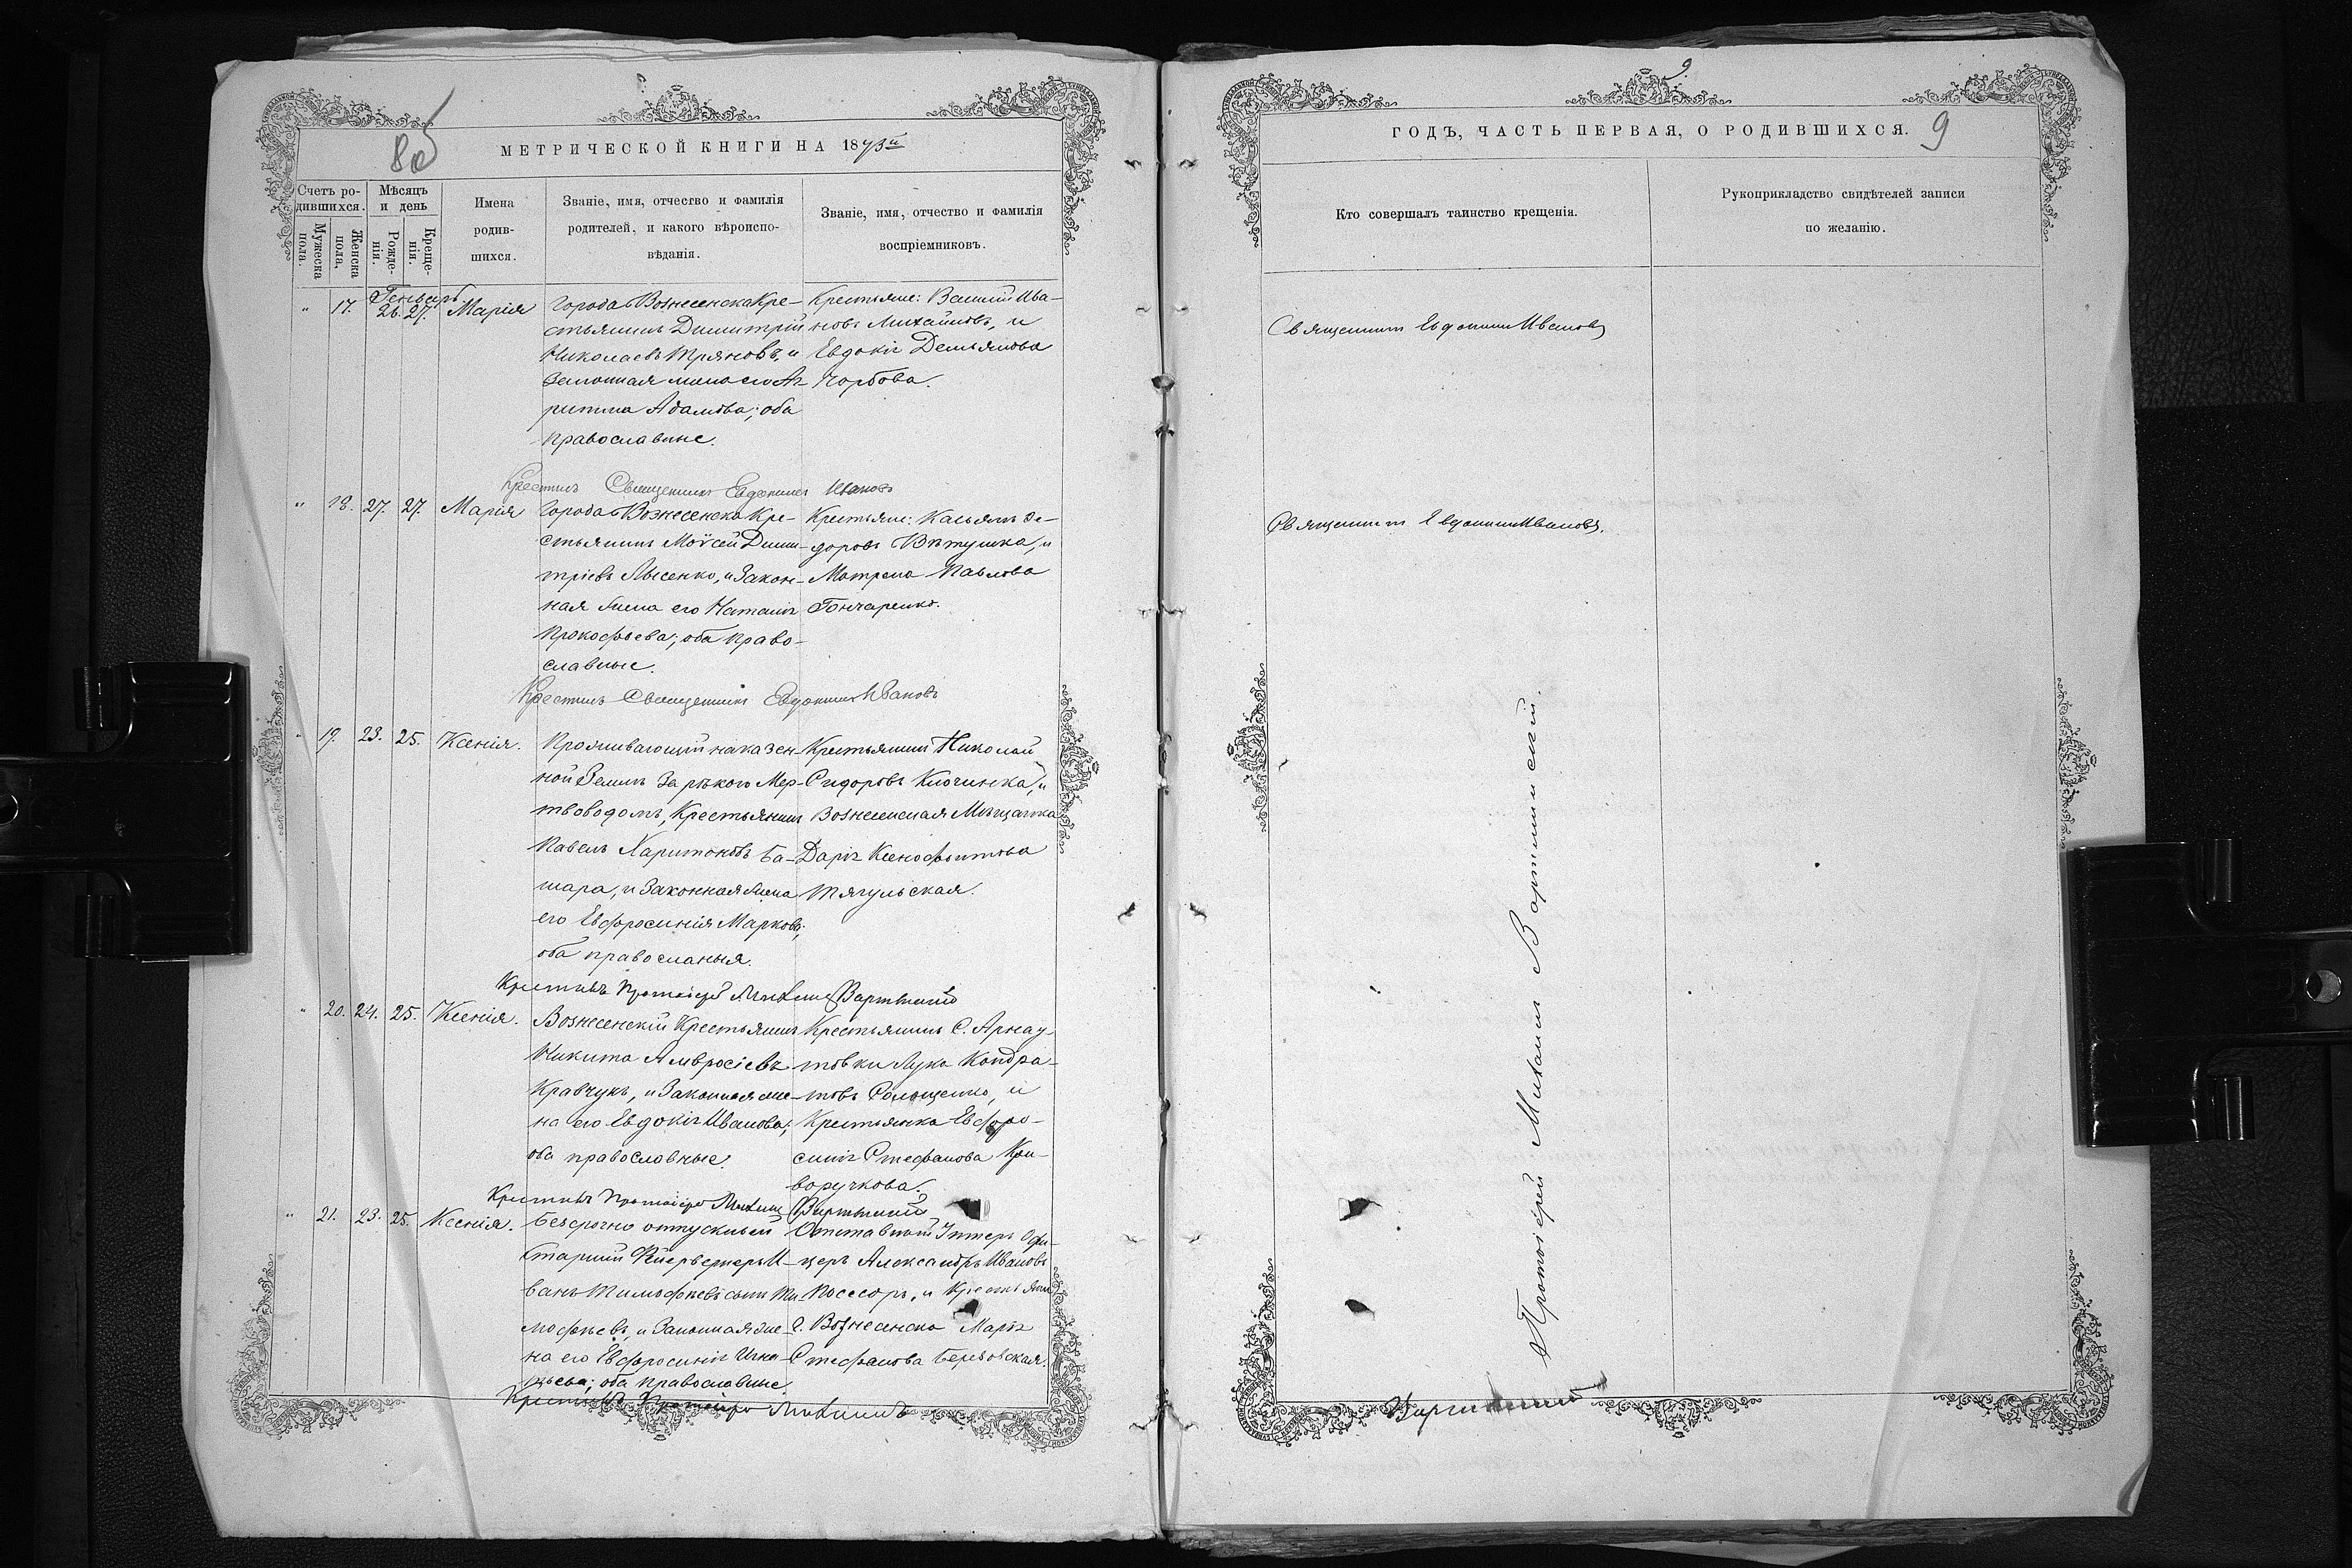 8об
МЕТРИЧЕСКОЙ КНИГИ НА 1873й
Счетъ родившихся.
Мѣсяцъ и день
Мужеска пола.
Женска пола.
Рожденія.
Крещенія.
Имена родившихся.
Званіе, имя, отчество и фамилія родителей, и какого вѣроисповѣданія.
Званіе, имя, отчество и фамилія воспріемниковъ.
Генварь
" 17. 26. 27. Марія
Города Вознесенска Кре-
стьянинъ Димитрій
Николаевъ Тряновъ, и
законная жена его Аг-
рипина Адамова; оба
православные.
Крестьяне: Василій Ива-
новъ Михайловъ, и
Евдокія Демьянова
Чорбова.
Крестилъ Священникъ Евдокимъ Ивановъ
" 18. 27. 27. Марія
Города Вознесенска Кре-
стьянинъ Моѵсей Дими-
тріевъ Лысенко, и Закон-
ная жена его Наталія
Прокофьева; оба право-
славные.
Крестьяне: Касьянъ Ѳе-
доровъ Вѣтушка, и
Матрена Павлова
Гончаренко.
Крестилъ Священникъ Евдокимъ Ивановъ
" 19. 23. 25. Ксенія.
Проживающій на казен-
ной Землѣ за рѣкою Мер-
твоводомъ, Крестьянинъ
Павелъ Харитоновъ Ба-
шара, и Законная жена
его Евфросинія Маркова;
оба православныя.
Крестьянинъ Николай
Сидоровъ Ключинска, и
Вознесенская Мѣщанка
Дарія Ксенофонтова
Тягульская.
Крестилъ Протоіерей Михаилъ Вартминскій
" 20. 24. 25. Ксенія.
Вознесенскій Крестьянинъ
Никита Амвросіевъ
Кравчукъ, и Законная же-
на его Евдокія Иванова;
оба православные.
Крестьянинъ С. Арнау-
товки Лука Кондра-
товъ Романенко, и
Крестьянка Евфро-
синія Стефанова Кри-
воручкова.
Крестилъ Протоіерей Михаилъ Вартминскій
" 21. 23. 25. Ксенія.
Безсрочно отпускной
старшій Фейерверкеръ И-
ванъ Тимофѣевъ сынъ Ти-
мофѣевъ, и Законная же-
на его Евфросинія Игна-
тьева; оба православные.
Отставной Унтеръ Офи-
церъ Александръ Ивановъ
Посесоръ, и Крестьян.
г. Вознесенска Марія
Стефанова Березовская.
Крестилъ Протоіерей Михаилъ Вартминскій
9.
ГОДЪ, ЧАСТЬ ПЕРВАЯ, О РОДИВШИХСЯ. 9
Кто совершалъ таинство крещенія.
Рукоприкладство свидѣтелей записи по желанію.
Священникъ Евдокимъ Ивановъ
Священникъ Евдокимъ Ивановъ.
Протоіерей Михаилъ Вартминскій.